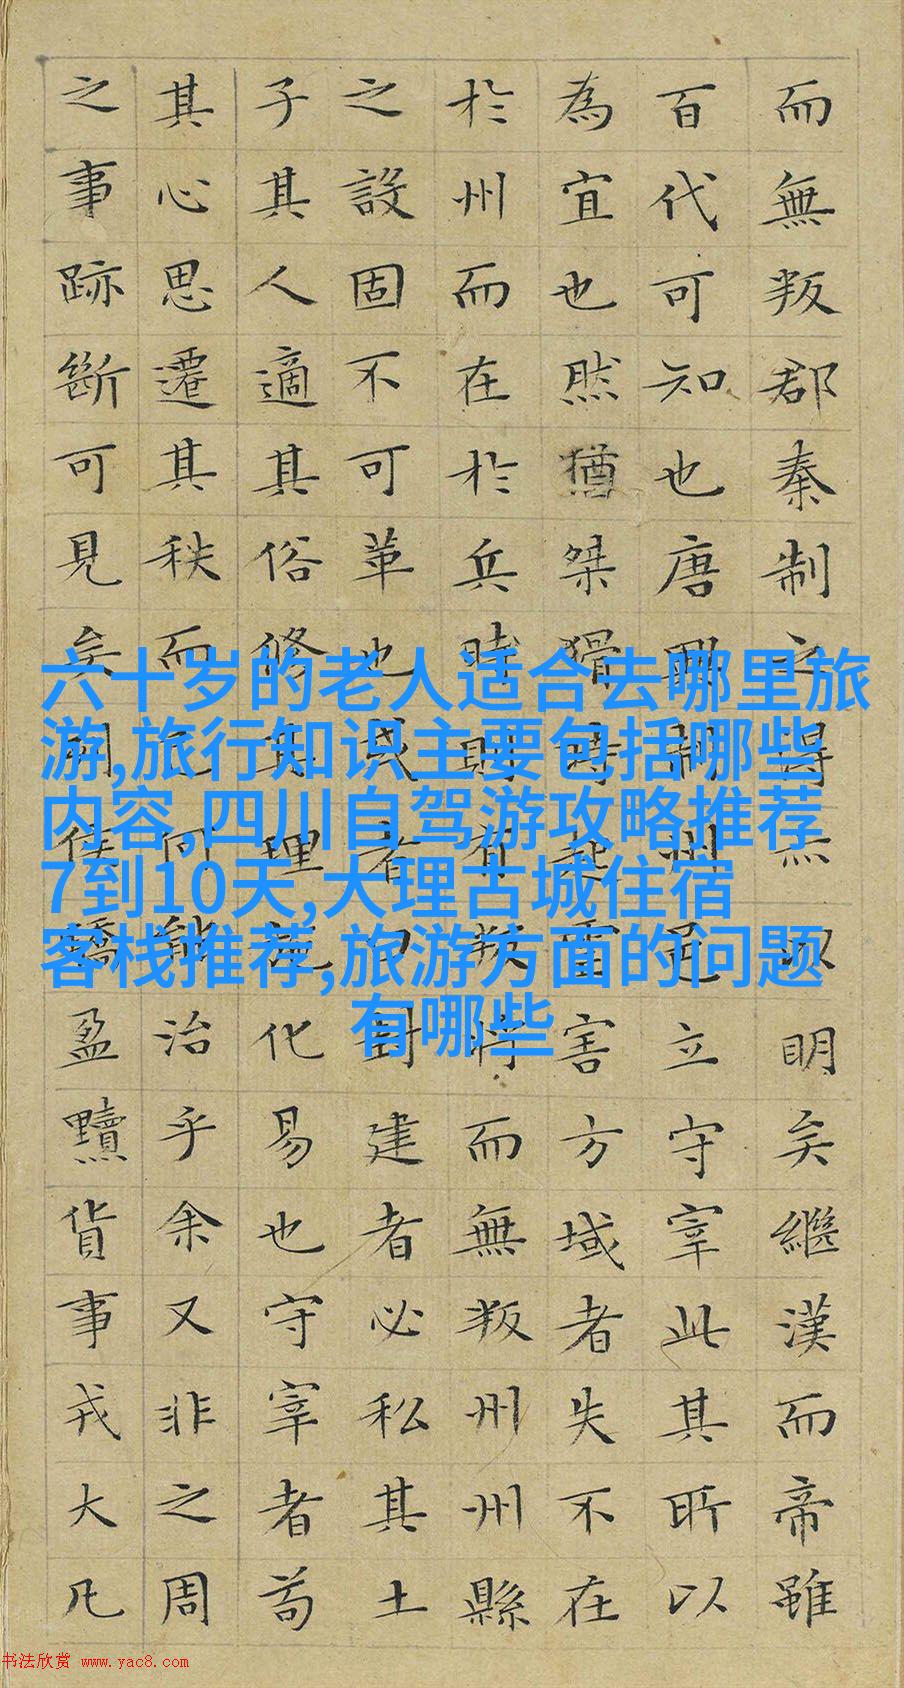 而無叛郡秦制之得亦以明矣繼漢而帝雖
百代可知也唐興制州邑立守宰此其所以
為宜也然猶桀猾時起虐害方域者失不在
於州而在於兵時則有叛將而無叛州州縣
之設固不可革也或者曰封建者必私其土
子其人適其俗修其理施化易也守宰者苟
其心思遷其秩而已何能治乎余又非之周
之事跡斷可見矣列侯驕盈黷貨事戎大凡
六十岁的老人适合去哪里旅
游,旅行知识主要包括哪些
内容,四川自驾游攻略推荐
7到10天,大理古城住宿
客栈推荐,旅游方面的问题
有哪些
书法欣赏 www.yac8.com